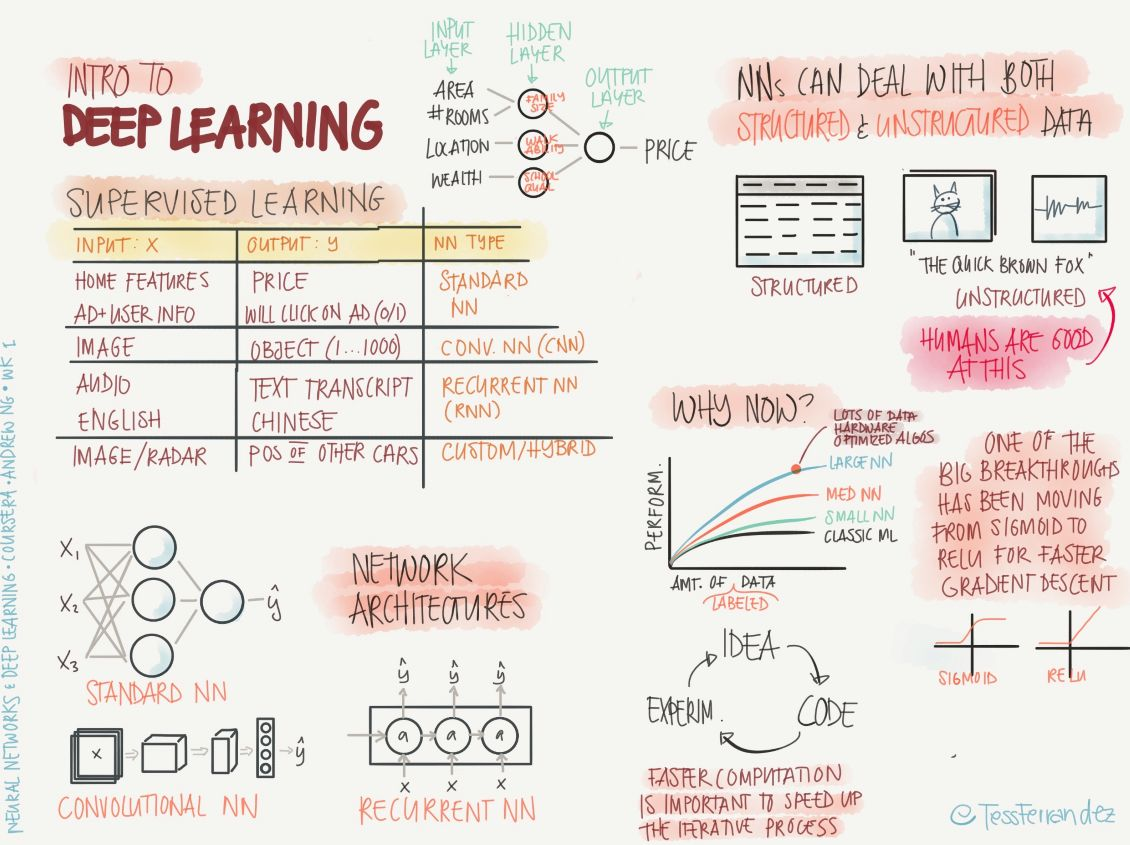 INTRO TO
DEEP LEARNING
INPUT LAYER
HIDDEN LAYER
OUTPUT LAYER
AREA
#ROOMS
LOCATION
WEALTH
FAMILY SIZE
WALK ABILITY
SCHOOL QUAL
PRICE
SUPERVISED LEARNING
INPUT: X OUTPUT: Y NN TYPE
HOME FEATURES PRICE STANDARD
AD+USER INFO WILL CLICK ON AD (0/1) NN
IMAGE OBJECT (1...1000) CONV. NN (CNN)
AUDIO TEXT TRANSCRIPT RECURRENT NN
ENGLISH CHINESE (RNN)
IMAGE/RADAR POS OF OTHER CARS CUSTOM/HYBRID
NNs CAN DEAL WITH BOTH
STRUCTURED & UNSTRUCTURED DATA
STRUCTURED
"THE QUICK BROWN FOX"
UNSTRUCTURED
HUMANS ARE GOOD
AT THIS
WHY NOW?
LOTS OF DATA
HARDWARE
OPTIMIZED ALGOS
LARGE NN
MED NN
SMALL NN
CLASSIC ML
PERFORM.
AMT. OF DATA
LABELED
ONE OF THE
BIG BREAKTHROUGHS
HAS BEEN MOVING
FROM SIGMOID TO
RELU FOR FASTER
GRADIENT DESCENT
SIGMOID
RELU
NETWORK
ARCHITECTURES
X1
X2
X3
ŷ
STANDARD NN
x
ŷ
CONVOLUTIONAL NN
ŷ ŷ ŷ
a a a
x x x
RECURRENT NN
IDEA
CODE
EXPERIM.
FASTER COMPUTATION
IS IMPORTANT TO SPEED UP
THE ITERATIVE PROCESS
NEURAL NETWORKS & DEEP LEARNING • COURSERA • ANDREW NG • WK 1
@TessFerrandez